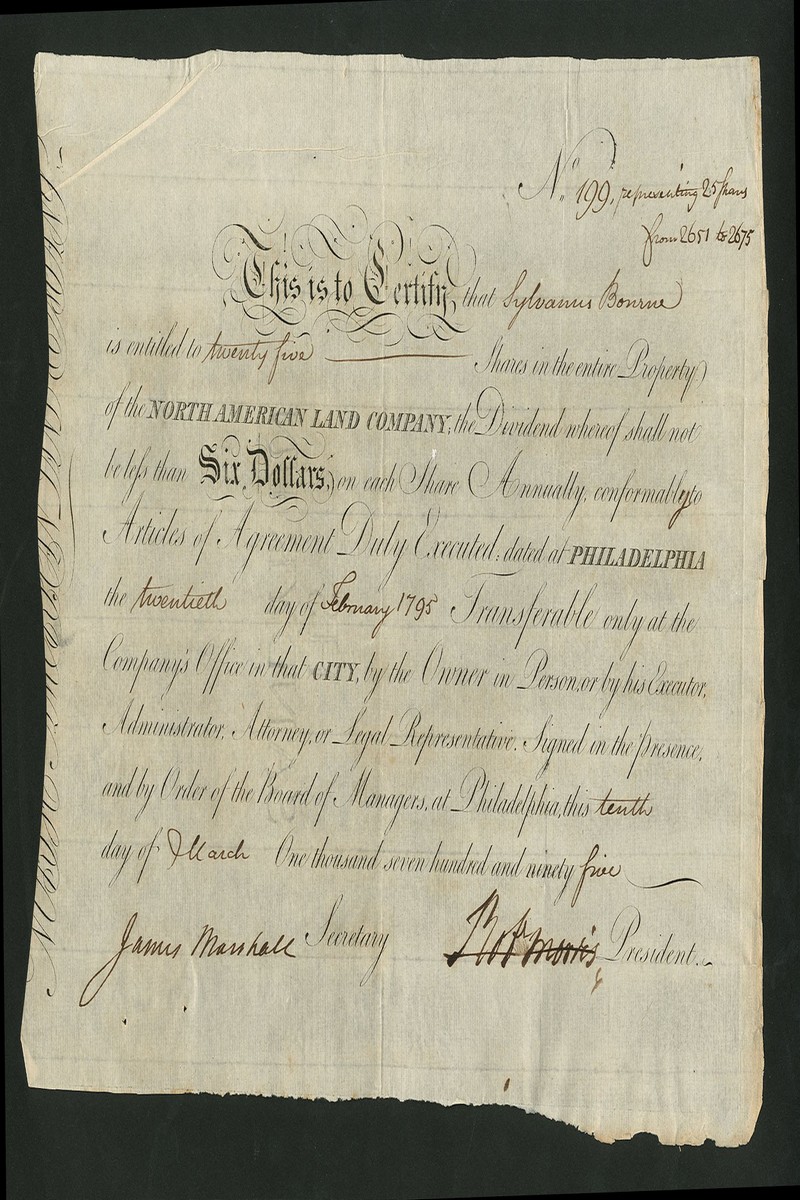 No. 199, representing 25 Shares
from 2651 to 2675
This is to Certify, that Sylvanus Bourne
is entitled to twenty five Shares in the entire Property
of the NORTH AMERICAN LAND COMPANY; the Dividend whereof shall not
be less than Six Dollars, on each Share Annually, conformably to
Articles of Agreement Duly Executed: dated at PHILADELPHIA
the twentieth day of February 1795 Transferable only at the
Company's Office in that CITY, by the Owner in Person, or by his Executor,
Administrator, Attorney, or Legal Representative. Signed in the presence,
and by Order of the Board of Managers, at Philadelphia, this tenth
day of March One thousand seven hundred and ninety five
James Marshall Secretary Robt Morris President.